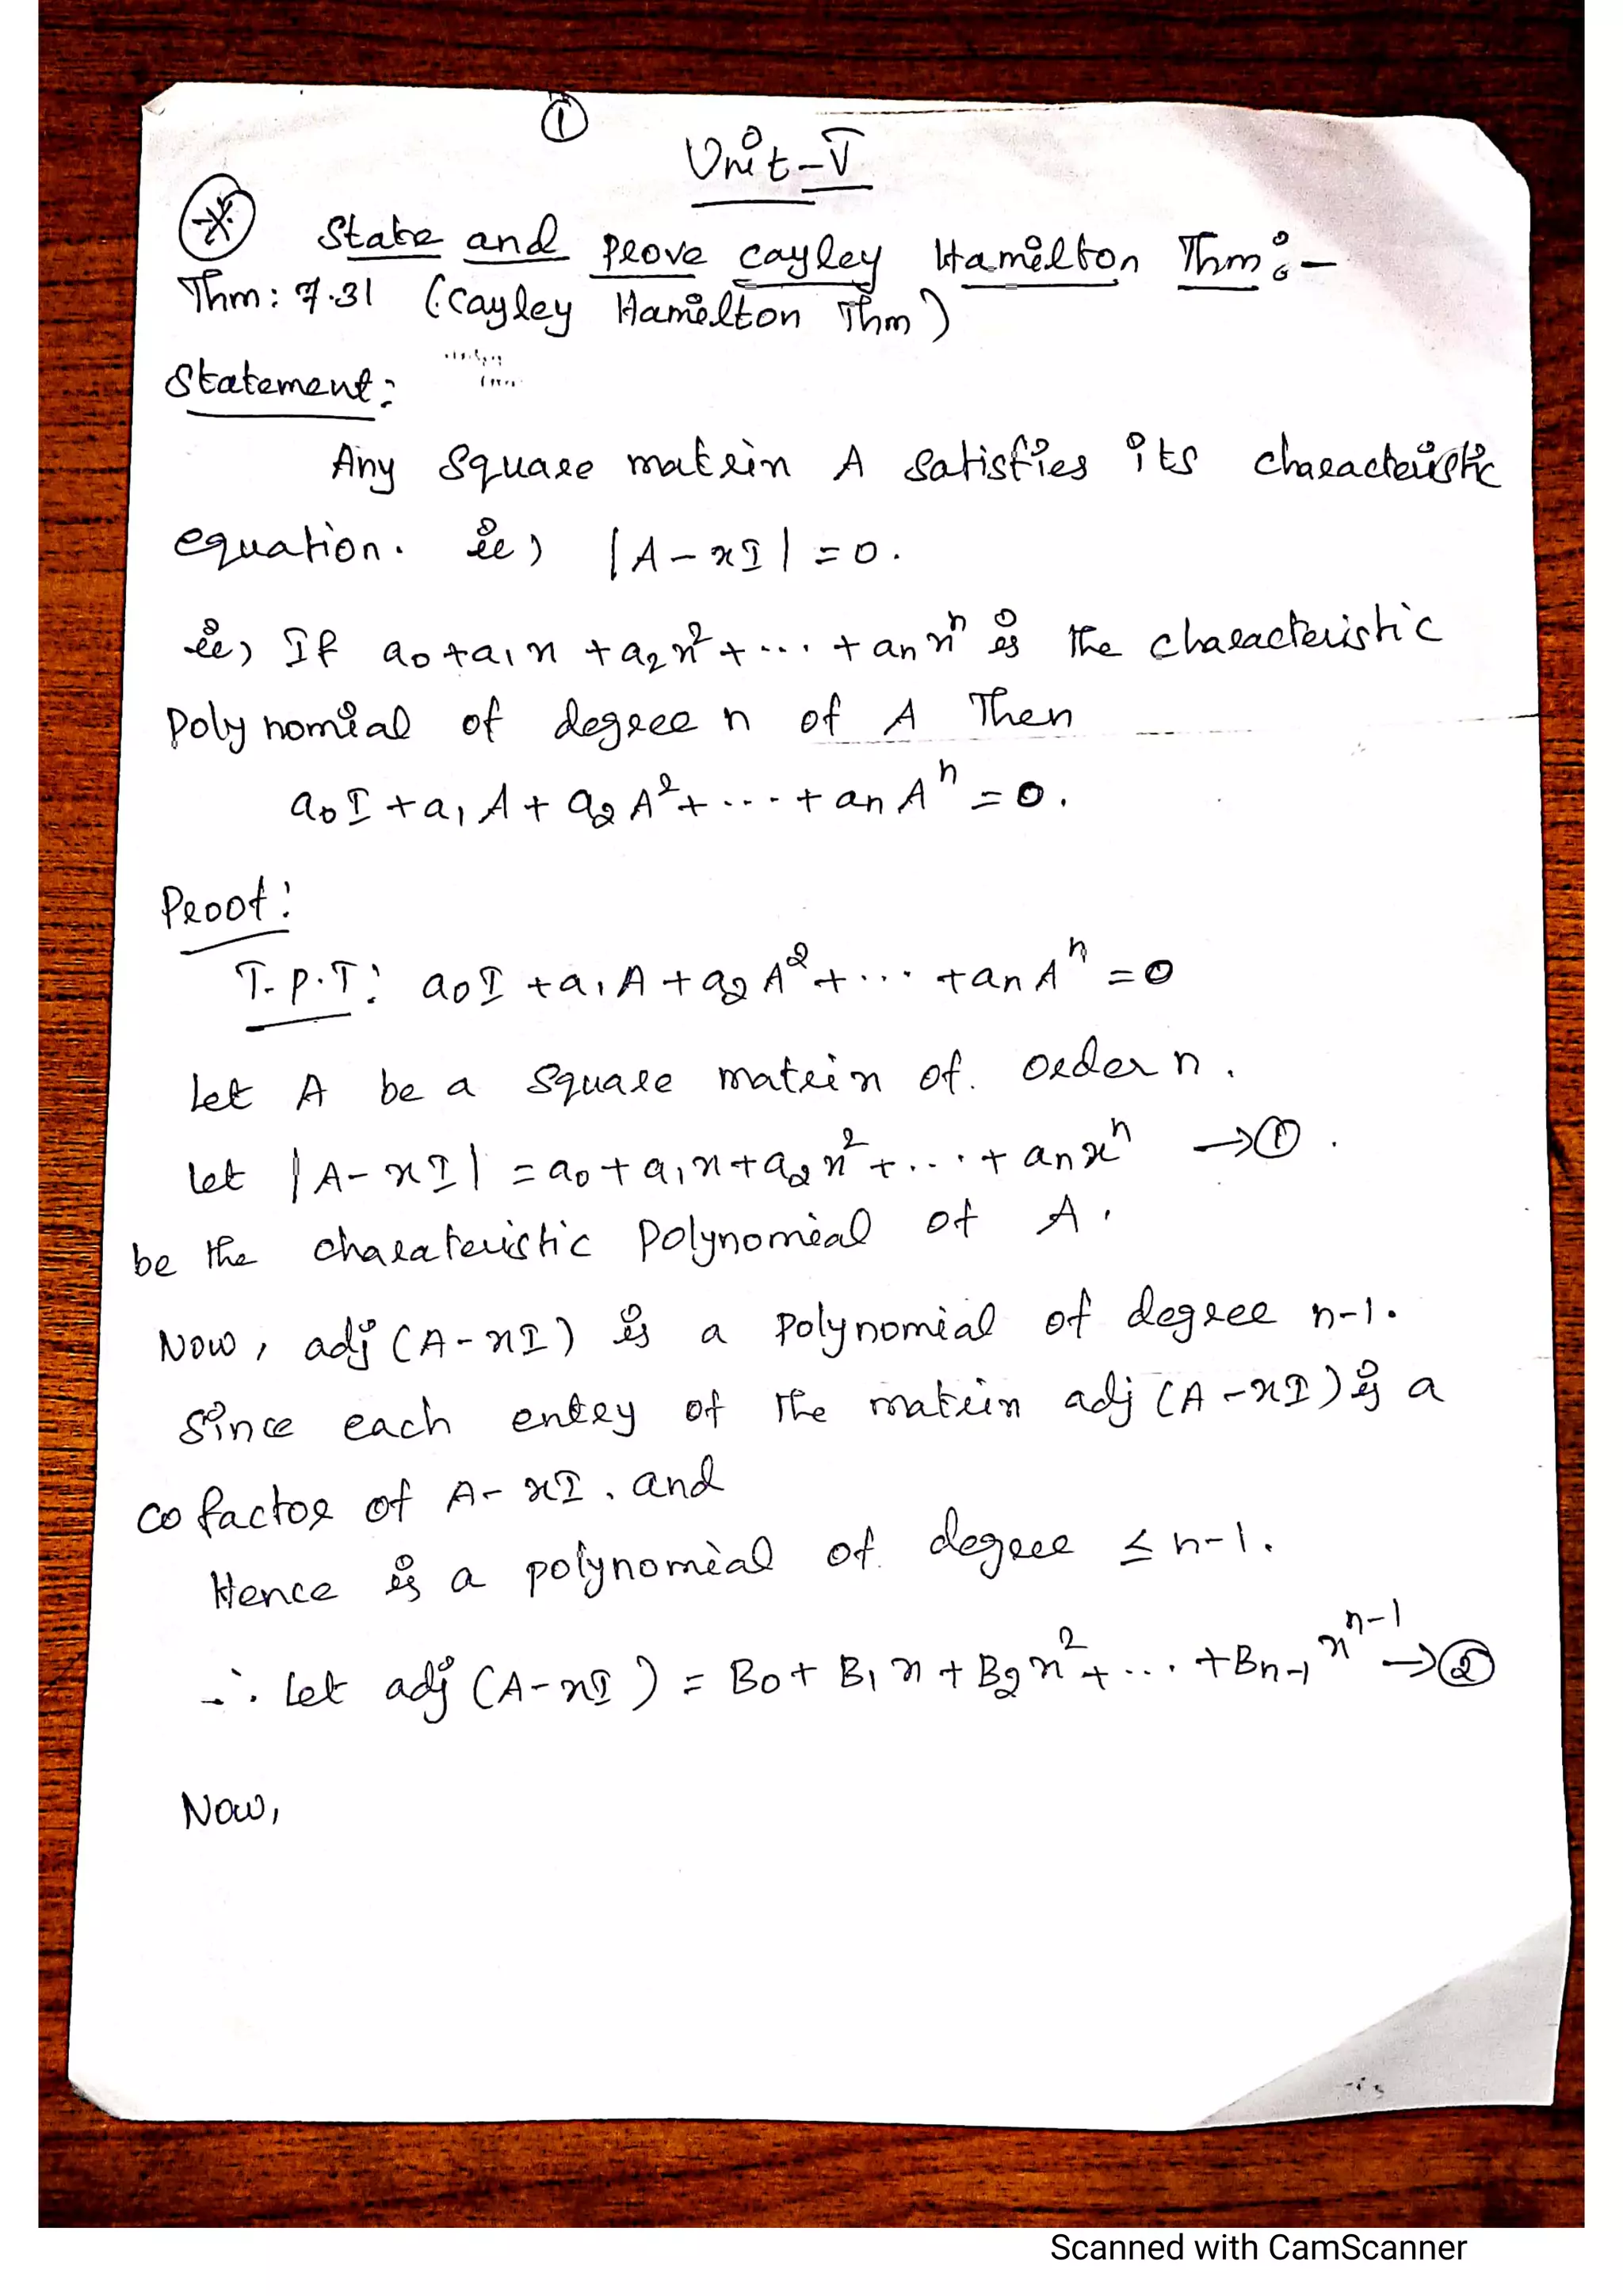 ①
Unit-V
State and prove cayley Hamilton Thm:-
Thm: 7.31 (cayley Hamilton Thm)
Statement:
Any square matrix A satisfies its characteristic
equation. ie) |A-xI| = 0.
ie) If a₀+a₁x+a₂x²+...+aₙxⁿ is the characteristic
polynomial of degree n of A Then
a₀I+a₁A+a₂A²+...+aₙAⁿ = 0.
Proof:
T.P.T: a₀I+a₁A+a₂A²+...+aₙAⁿ = 0
Let A be a square matrix of order n.
Let |A-xI| = a₀+a₁x+a₂x²+...+aₙxⁿ →①.
be the charateristic polynomial of A.
Now, adj (A-xI) is a polynomial of degree n-1.
Since each entry of the matrix adj (A-xI) is a
cofactor of A-xI. and
Hence is a polynomial of degree ≤ n-1.
∴ Let adj (A-xI) = B₀+B₁x+B₂x²+...+Bₙ₋₁xⁿ⁻¹ →②
Now,
Scanned with CamScanner